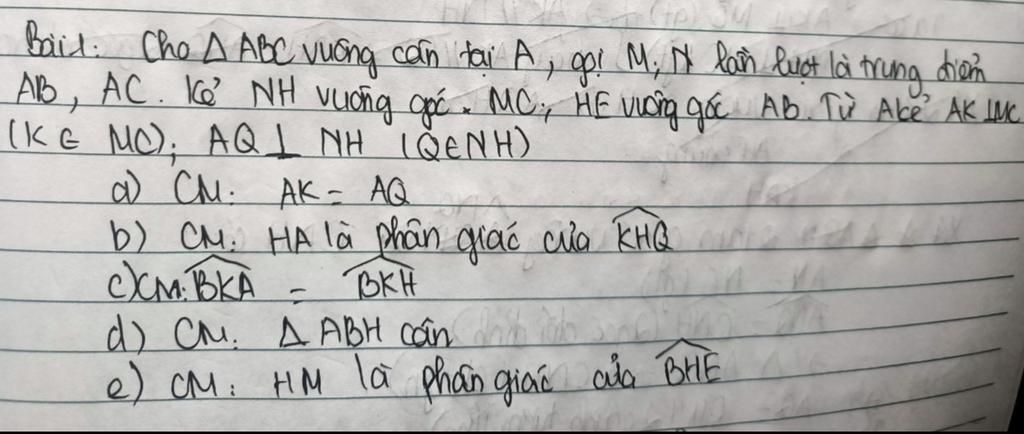 Bài 1: Cho Δ ABC vuông cân tại A, gọi M, N lần lượt là trung điểm
AB, AC. Kẻ NH vuông góc. MC; HE vuông góc AB. Từ A kẻ AK ⊥ MC
(K ∈ MC); AQ ⊥ NH (Q∈NH)
a) CM: AK = AQ
b) CM: HA là phân giác của \widehat{KHQ}
c) CM: \widehat{BKA} = \widehat{BKH}
d) CM: Δ ABH cân
e) CM: HM là phân giác của \widehat{BHE}